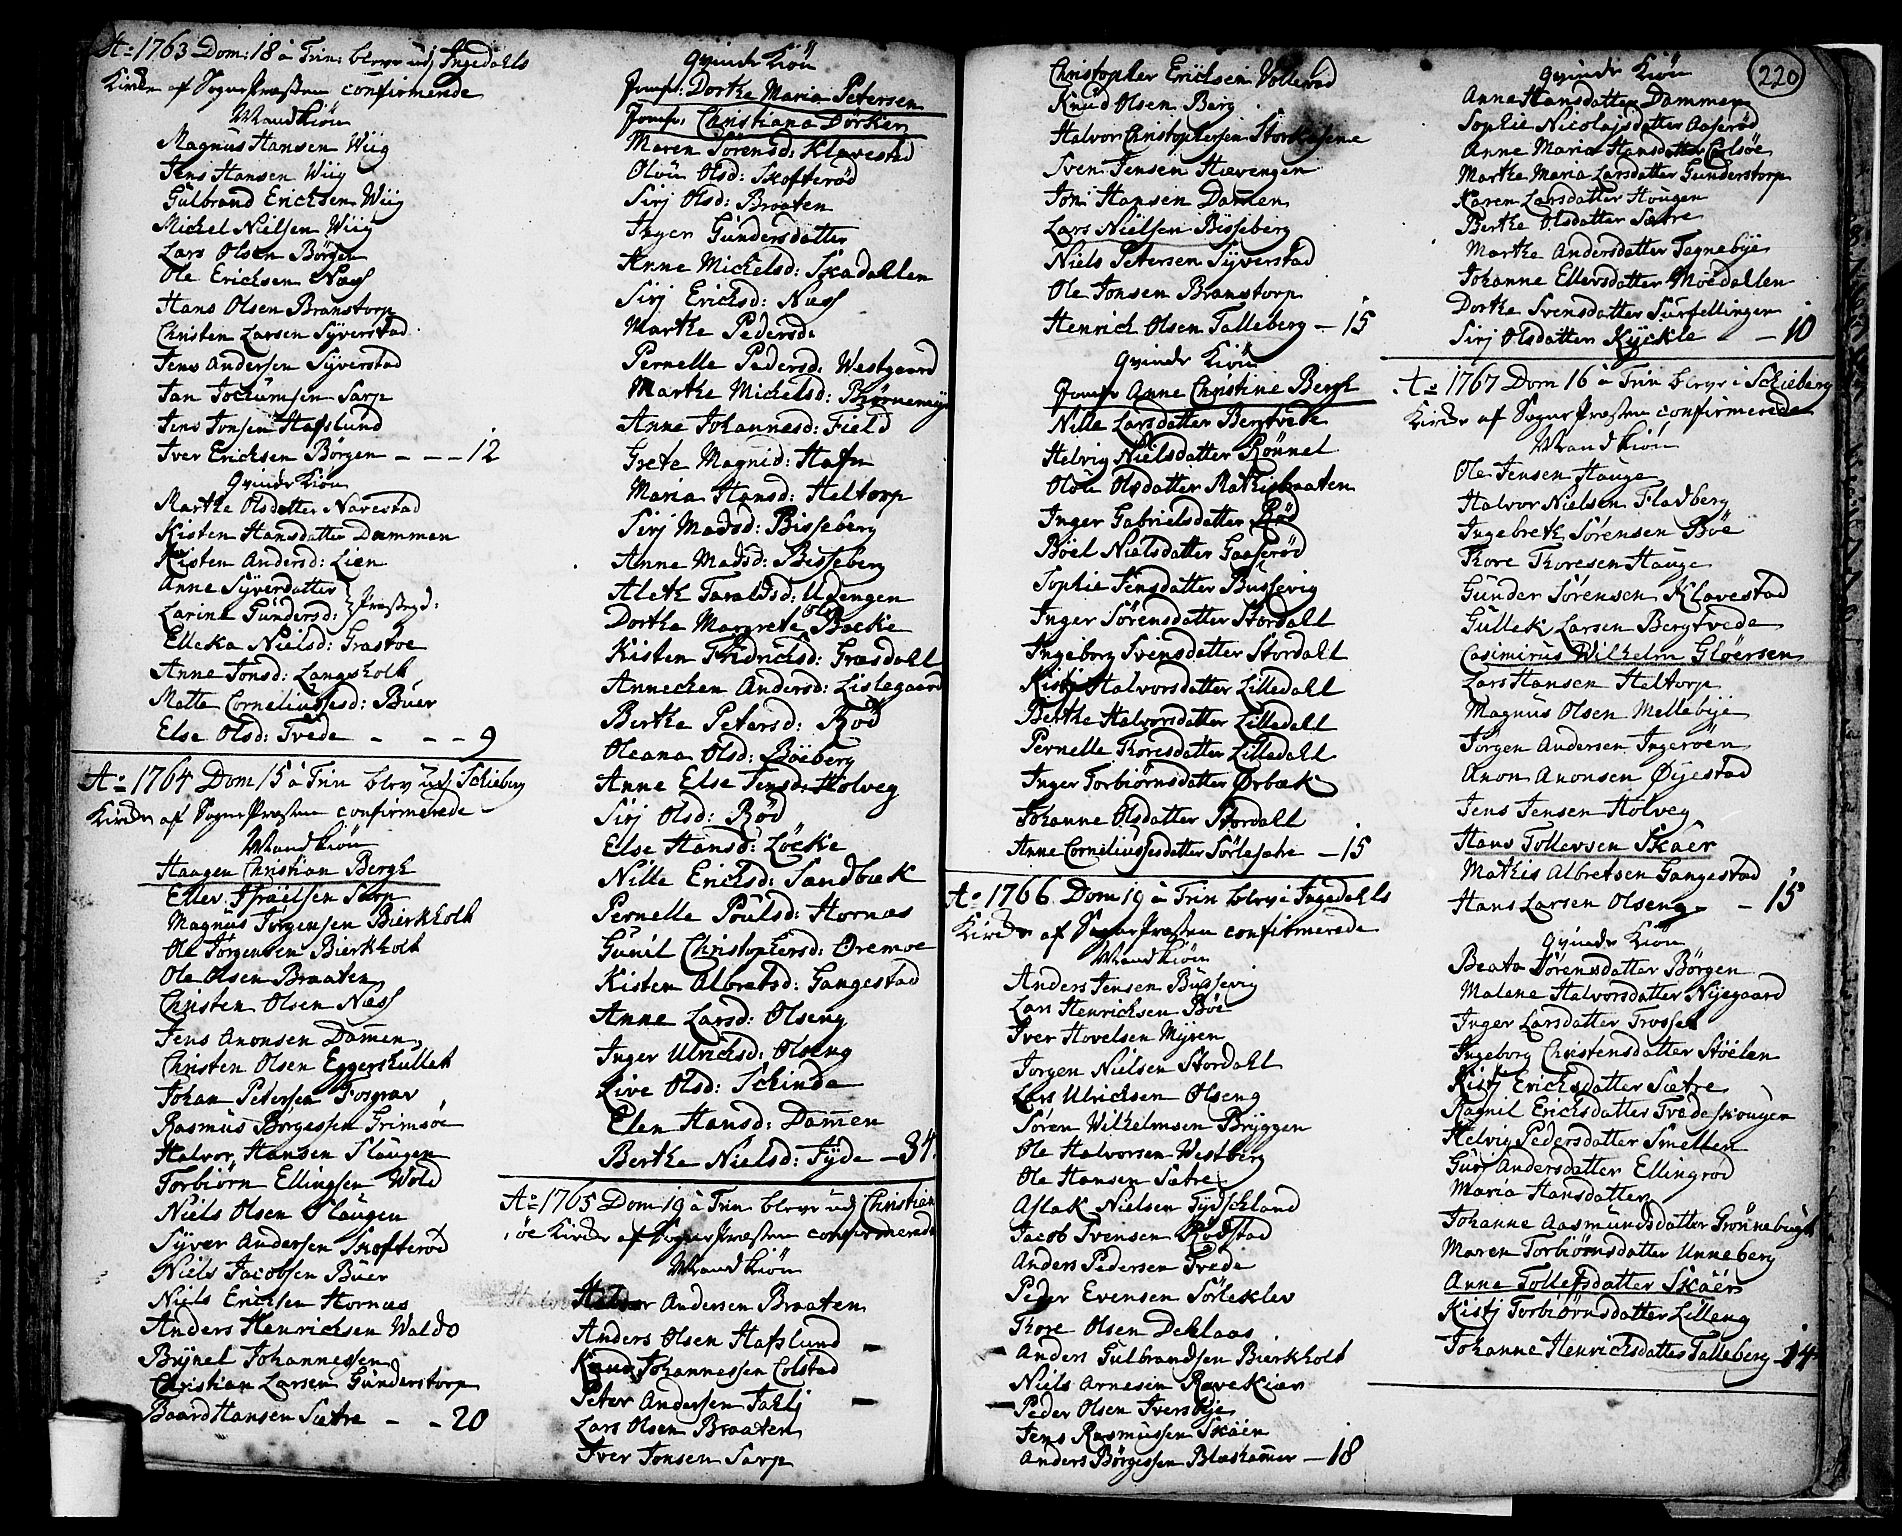 Ao 1763 Dom: 18 à Trin: blev udj Ingedahls
Kirke af Sogne Præsten confirmerede
Mandkiön
Magnus Hansen Wiig
Jens Hansen Wiig
Gulbrand Erichsen Wiig
Michel Nielsen Wiig
Lars Olsen Börgen
Ole Erichsen Næss
Hans Olsen Branstorp
Christen Larsen Syverstad
Jens Andersen Syverstad
Jan Jochumsen Sarp
Jens Jonsen Hafslund
Iver Erichsen Börgen - - - 12
Qvinde Kiön
Marthe Olsdatter Navestad
Kisten Hansdatter Dammen
Kisten Andersd: Lien
Anne Syverdatter
Larine Gundersd: Præstegd:
Elleka Nielsd: Grastoe
Anne Jonsd: Langsholt
Mette Corneliussesd: Buer
Else Olsd: Tvede - - - 9
Ao 1764 Dom 15 à Trin blev udj Schieberg
Kirke af Sogne Præsten confirmerede
Mandkiön
Haagen Christian Bergh
Eller Israelsen Sarp
Magnus Jörgensen Bierkholt
Ole Jörgensen Bierkholt
Ole Olsen Braaten
Christen Olsen Næss
Jens Anonsen Damen
Christen Olsen Eggershullet
Johan Petersen Torgrav
Rasmus Börgessen Grimsöe
Halvor Hansen Slaugen
Torbiörn Ellingsen Wold
Niels Olsen Slaugen
Syver Andersen Skofteröd
Niels Jacobsen Buer
Niels Erichsen Hornæs
Anders Henrichsen Waldo
Brynel Johannessen
Christian Larsen Gunderstorp
Baard Hansen Sætre - - 20
Qvinde Kiön
Jomfr: Dorthe Maria Petersen
Jomfr: Christiana Dörker
Maren Sörensd: Klavestad
Olou Olsd: Skofteröd
Sirj Olsd: Braaten
Inger Gundersdatter
Anne Michelsd: Skadahlen
Sirj Erichsd: Næss
Marthe Pedersd:
Pernelle Pedersd: Westgaard
Marthe Michelsd: Biörnemyr
Anne Johannesd: Field
Grete Magnid: Hafn
Maria Hansd: Heltorp
Sirj Madsd: Bisseberg
Anne Madsd: Bisseberg
Aleth Taraldsd: Udengen
Dorthe Margrete Olsd Bakke
Kisten Fridrichsd: Græsdahl
Annechen Andersd: Lislegaard
Berthe Petersd: Röd
Oleana Olsd: Böeberg
Anne Else Jensd: Holveg
Sirj Olsd: Röd
Else Hansd: Löcke
Nille Erichsd: Sandbæk
Pernelle Poulsd: Hornæs
Gunil Christophersd: Oremoe
Kisten Albretsd: Gangestad
Anne Larsd: Olseng
Inger Ulrichsd: Olseng
Live Olsd: Schinda
Elen Hansd: Damen
Berthe Nielsd: Tyde - 34
Ao 1765 Dom 19 à Trin: blev udj Christian
öe Kirke af Sogne Præsten confirmerede
Mandkiön
Halvor Andersen Braaten
Anders Olsen Hafslund
Knud Johannessen Colstad
Peter Andersen Tahlj
Lars Olsen Braaten
Iver Jonsen Sarp
220
Christopher Erichsen Volleröd
Knud Olsen Berg
Halvor Christophersen Storkasene
Sven Jensen Hævengen
Jon Hansen Damen
Lars Nielsen Bisseberg
Niels Petersen Syverstad
Ole Jonsen Branstorp
Henrich Olsen Talleberg - 15
Qvinde Kiön
Jomfr Anne Christine Bergh
Nille Larsdatter Bergtvede
Helvig Nielsdatter Rönnel
Olou Olsdatter Mathisbraaten
Inger Gabrielsdatter Röd
Böel Nielsdatter Gaaseröd
Sophie Jensdatter Bussevig
Inger Sörensdatter Stordahl
Ingeborg Svensdatter Stordahl
Kistj Halvorsdatter Lilledahl
Berthe Halvorsdatter Lilledahl
Pernelle Thoresdatter Lilledahl
Inger Torbiörnsdatter Örbæk
Johanne Olsdatter Stordahl
Anne Corneliussesdatter Sörlesætre - 15
Ao 1766 Dom 19 à Trin blev i Ingedahls
Kirke af Sogne Præsten confirmerede
Mandkiön
Anders Jensen Bussevig
Lars Henrichsen Böe
Iver Hovelsen Myren
Jorgen Nielsen Stordahl
Lars Ulrichsen Olseng
Sören Wilhelmsen Bryggen
Ole Halvorsen Westberg
Ole Hansen Sætre
Aslak Nielsen Tydschland
Jacob Svensen Rödstad
Anders Pedersen Tvede
Peder Evensen Sörleklev
Thore Olsen Dehlaas
Anders Gulbrandsen Bierkholt
Niels Arnesen Rævekiær
Peder Olsen Iversbye
Jens Rasmussen Skaien
Anders Börgessen Blæshamer - 18
Qvinde Kiön
Anne Hansdatter Dammen
Sophie Nicolajsdatter Aaseröd
Anne Maria Hansdatter Colsöe
Marthe Maria Larsdatter Gunderstorp
Karen Larsdatter Haugen
Berthe Olsdatter Sætre
Marthe Andersdatter Tegnebye
Johanne Ellersdatter Moedallen
Dorthe Svensdatter Surfellingen
Sirj Olsdatter Kyckle - 10
Ao 1767 Dom 16 à Trin blev i Schieberg
Kirke af Sogne Præsten confirmerede
Mandkiön
Ole Jensen Hauge
Halvor Nielsen Fladberg
Ingebreth Sörensen Böe
Thore Thoresen Hauge
Gunder Sörensen Klavestad
Gullek Larsen Bergtvede
Casimirus Wilhelm Glöersen
Lars Hansen Heltorp
Magnus Olsen Mellebye
Jörgen Andersen Ingeröen
Anon Anonsen Öyestad
Jens Jensen Holveg
Hans Tollevsen Skaer
Mathis Albretsen Gangestad
Hans Larsen Olseng - 15
Qvinde Kiön
Beata Sörensdatter Börgen
Malene Halvorsdatter Nygaard
Inger Larsdatter Trosset
Ingeborg Christensdatter Stöelen
Kistj Erichsdatter Sætre
Ragnil Erichsdatter Tvede skougen
Helvig Pedersdatter Smelten
Guri Andersdatter Ellingröd
Maria Hansdatter
Johanne Aasmundsdatter Grönnebugt
Maren Torbiörnsdatter Unneberg
Anne Tollefsdatter Skaer
Kistj Torbiörnsdatter Lilleng
Johanne Henrichsdatter Talleberg - 14